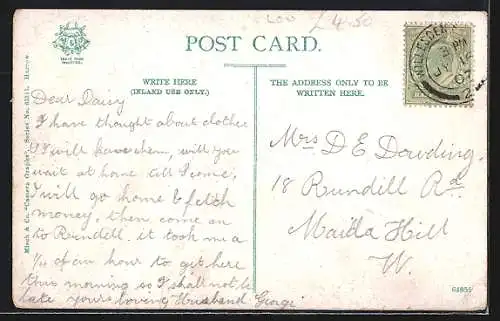 LOO £4-50
POST CARD.
WRITE HERE
(INLAND USE ONLY.)
THE ADDRESS ONLY TO BE
WRITTEN HERE.
WILLESDEN
PM
07
2
Dear Daisy
I have thought about clothes
I will have them, will you
wait at home till I come,
I will go home & fetch
money, then come on
to Rundell. it took me a
1/4 of an hour to get here
this morning so I shall not be
late yours loving Husband George
Mrs D E Dowding.
18 Rundill Rd
Maida Hill
W.
Misch & Co. "Camera Graphs" Series No. Harrow